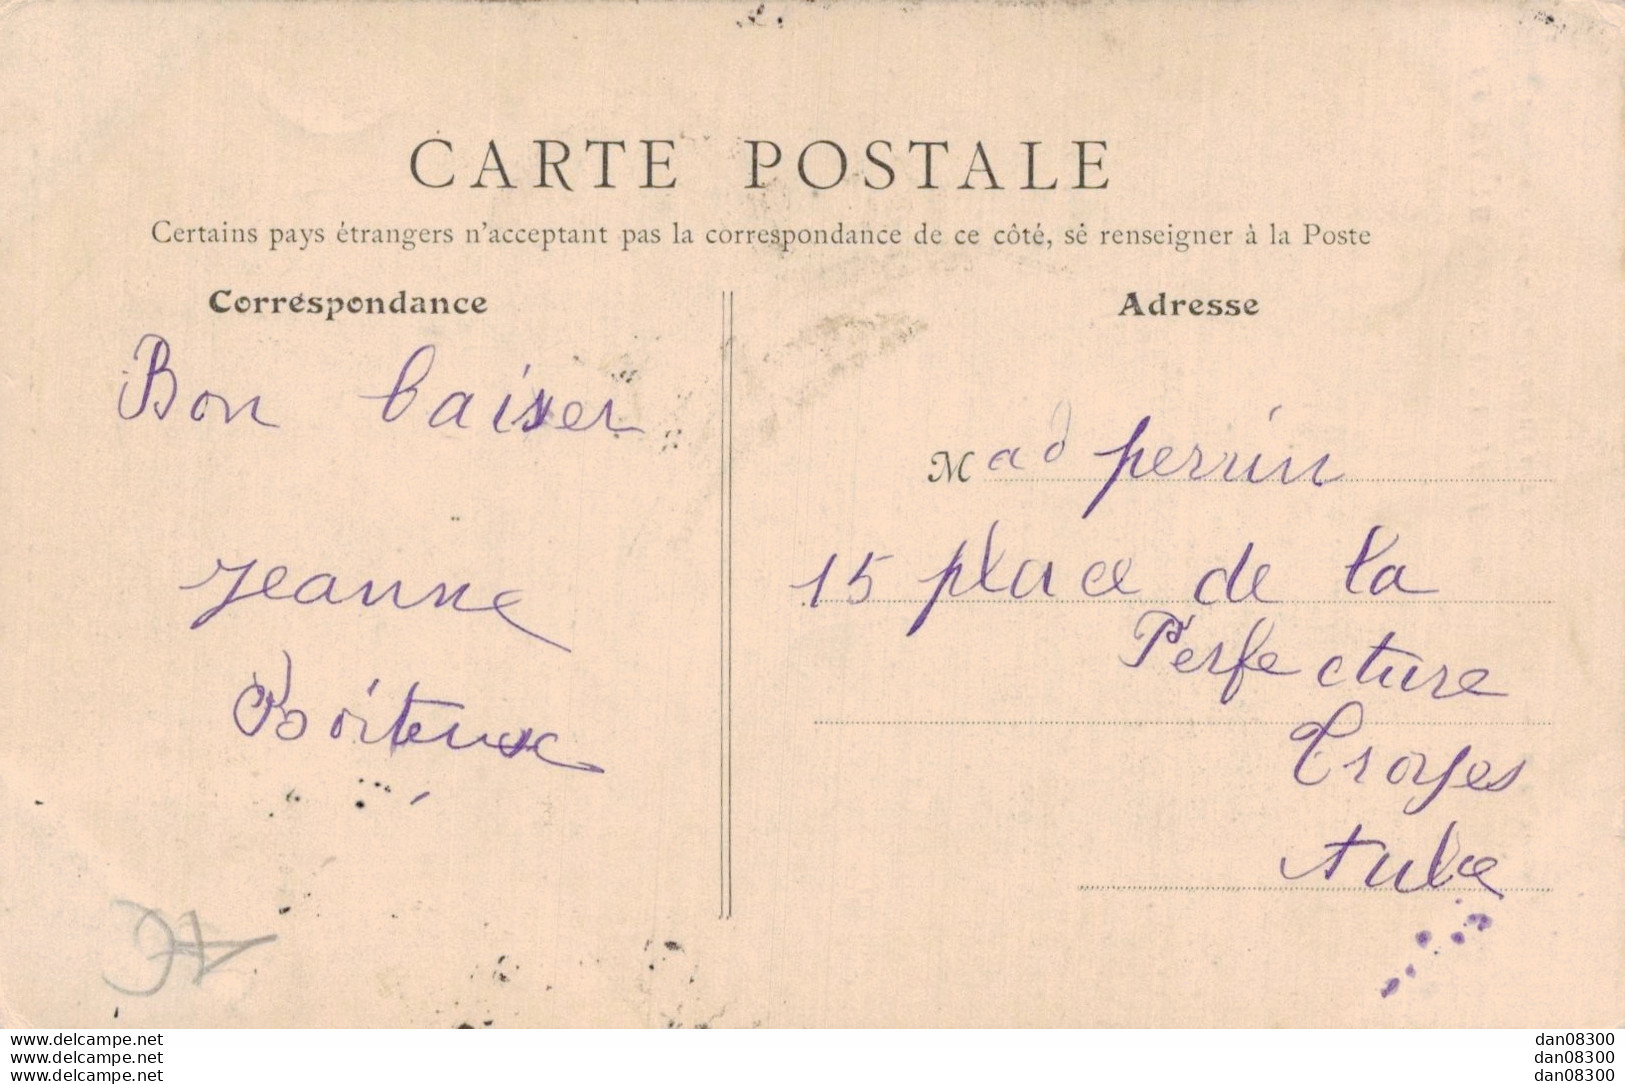 CARTE POSTALE
Certains pays étrangers n'acceptant pas la correspondance de ce côté, sé renseigner à la Poste
Correspondance
Bon baiser
Jeanne
Boiteux
Adresse
Mad perrin
15 place de la
Perfecture
Troyes
Aube
www.delcampe.net
www.delcampe.net
www.delcampe.net
dan08300
dan08300
dan08300